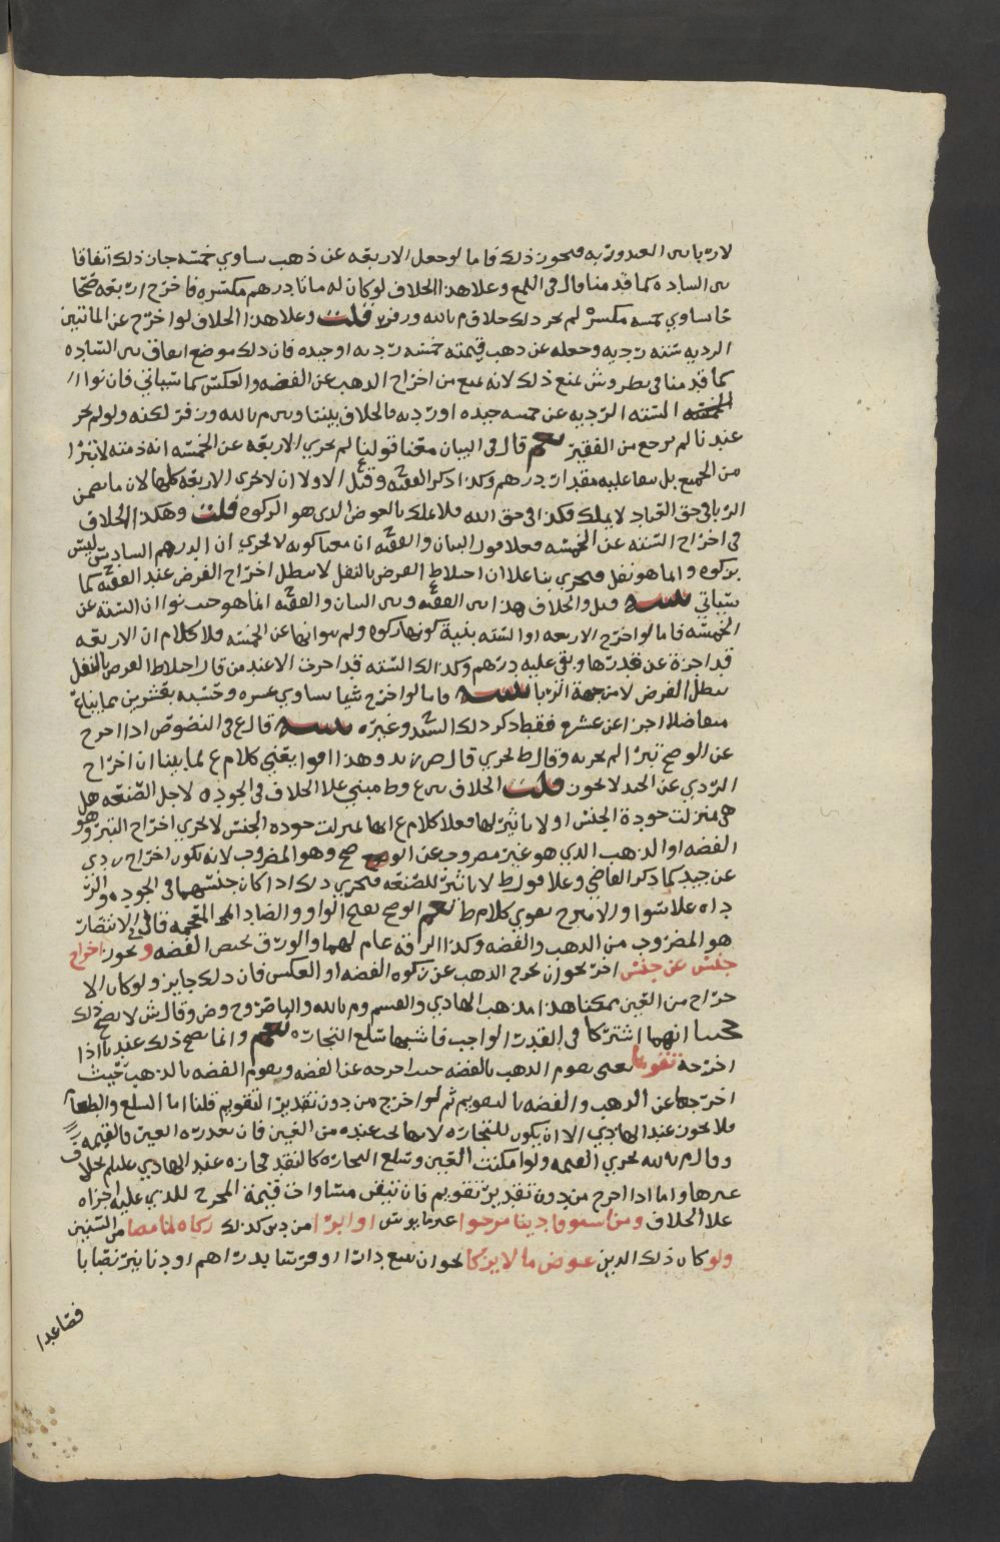 لا ربا بين العبد وربه فيجوز ذلك فاما لو جعل الاربعه عن ذهب يساوي خمسه جاز ذلك اتفاقا
بين الساده كما قدمنا قال في اللمع وعلا هذا الخلاف لو كان له ماتا درهم مكسره فاخرج اربعه صحاحا
تساوي خمسه مكسره لم يجز ذلك خلافا م بالله وزفر قلت وعلا هذا الخلاف لو اخرج عن الماتين
الرديه سته رديه وجعله عن ذهب قيمته خمسه رديه او جيده فان ذلك موضع اتفاق بين الساده
كما قدمنا في بطروش يمنع ذلك لانه يمنع من اخراج الذهب عن الفضه والعكس كما سياتي فان نوا
السته الرديه عن خمسه جيده او رديه فالخلاف بيننا وبين م بالله وزفر لكنه ولو لم يجز
عندنا لم يرجع من الفقير نعم قال في البيان معنا قولنا لم يجزي الاربعه عن الخمسه انه ذمته لا تبرا
من الجميع بل يبقا عليه مقدار درهم وكذا ذكر الفقيه وقيل الاولا ان لا يجزي الاربعه كلها لان ما يضمن
الربا في حق العباد لا يملك فكذا في حق الله فلا يملك بالعوض الذي هو الزكوه قلت وهكذا الخلاف
في اخراج السته عن الخمسه فعلا قول البيان والفقيه ان معنا كونه لا يجزي ان الدرهم السادس ليس
بزكوه وانما هو نفل فيجزي بنا علا ان اختلاط الفرض بالنفل لا يبطل اخراج الفرض عند الفقيه كما
سياتي تنبيه قيل والخلاف هذا بين الفقيه وبين البيان والفقيه انما هو حيث نوا ان السته عن
الخمسه فاما لو اخرج الاربعه او السته بنية كونها زكوه ولم ينوانها عن الخمسه فلا كلام ان الاربعه
قد اجزة عن قدرها وبقي عليه درهم وكذلك السته قد اجزت الا عند من قال اختلاط الفرض بالنفل
يبطل الفرض لا من جهة الربا تنبيه فاما لو اخرج شيا يساوي عشره وحسبه بعشرين مما يباع
متفاضلا اجزا عن عشره فقط ذكر ذلك السيد وغيره تنبيه قال ع في النصوص اذا اخرج
عن الوضح تبرا لم يجزه وقال ط يجزي قال ص زيد وهذا اقوا يعني كلام ع لما بينا ان اخراج
الردي عن الجيد لا يجوز قلت الخلاف بين ع وط مبني علا الخلاف في الجوده لاجل الصنعه هل
هي منزلت جودة الجنس او لا تاثير لها فعلا كلام ع انها بمنزلت جوده الجنس لا يجزي اخراج التبر وهو
الفضه او الذهب الذي هو غير مضروب عن الوضح وهو المضروب لانه يكون اخراج ردي
عن جيد كما ذكر القاضي وعلا قول ط لا تاثير للصنعه فيجزي ذلك اذا كان جنسهما في الجوده والر
داه علا سوا والا يترجح يقوي كلام ط نعم الوضح بفتح الواو والضاد المعجمه قال في الانتصار
هو المضروب من الذهب والفضه وكذا الرقه عام لهما والورق يختص الفضه ويجوز اخراج
جنس عن جنس اخر يجوز ان يخرج الذهب عن زكوه الفضه او العكس فان ذلك جايز ولو كان الا
خراج من العين ممكنا هذا مذهب الهادي والقسم وم بالله والناصر وح وص وقال ش لا يصح ذلك
حجتنا انهما اشتركا في القدر الواجب فاشبها سلع التجاره نعم وانما يصح ذلك عندنا اذا
اخرجه تقويما يعني يقوم الذهب بالفضه حيث اخرجه عن الفضه ويقوم الفضه بالذهب حيث
اخرجها عن الذهب والفضه بالتقويم ثم لو اخرج من دون تقدير التقويم قلنا اما السلع والطعام
فلا يجوز عند الهادي الا ان يكون للتجاره لانها تجب عنده من العين فان تعذره العين فالقيمه
وقال م بالله يجزي القيمه ولو امكنت العين وسلع التجاره كالنقد في جازه عند الهادي عليلم بخلاف
غيرها واما اذا اخرج من دون تقدير تقويم فان تيقن مساوات قيمة المخرج للذي عليه اجزاه
علا الخلاف ومن استوفا دينا مرجوا غير مايوس او ابرا من دين كذلك زكاه لما مضا من السنين
ولو كان ذلك الدين عوض ما لا يزكا نحو ان يبيع دارا او فرسا بدراهم او دنانير نصابا
فصاعدا